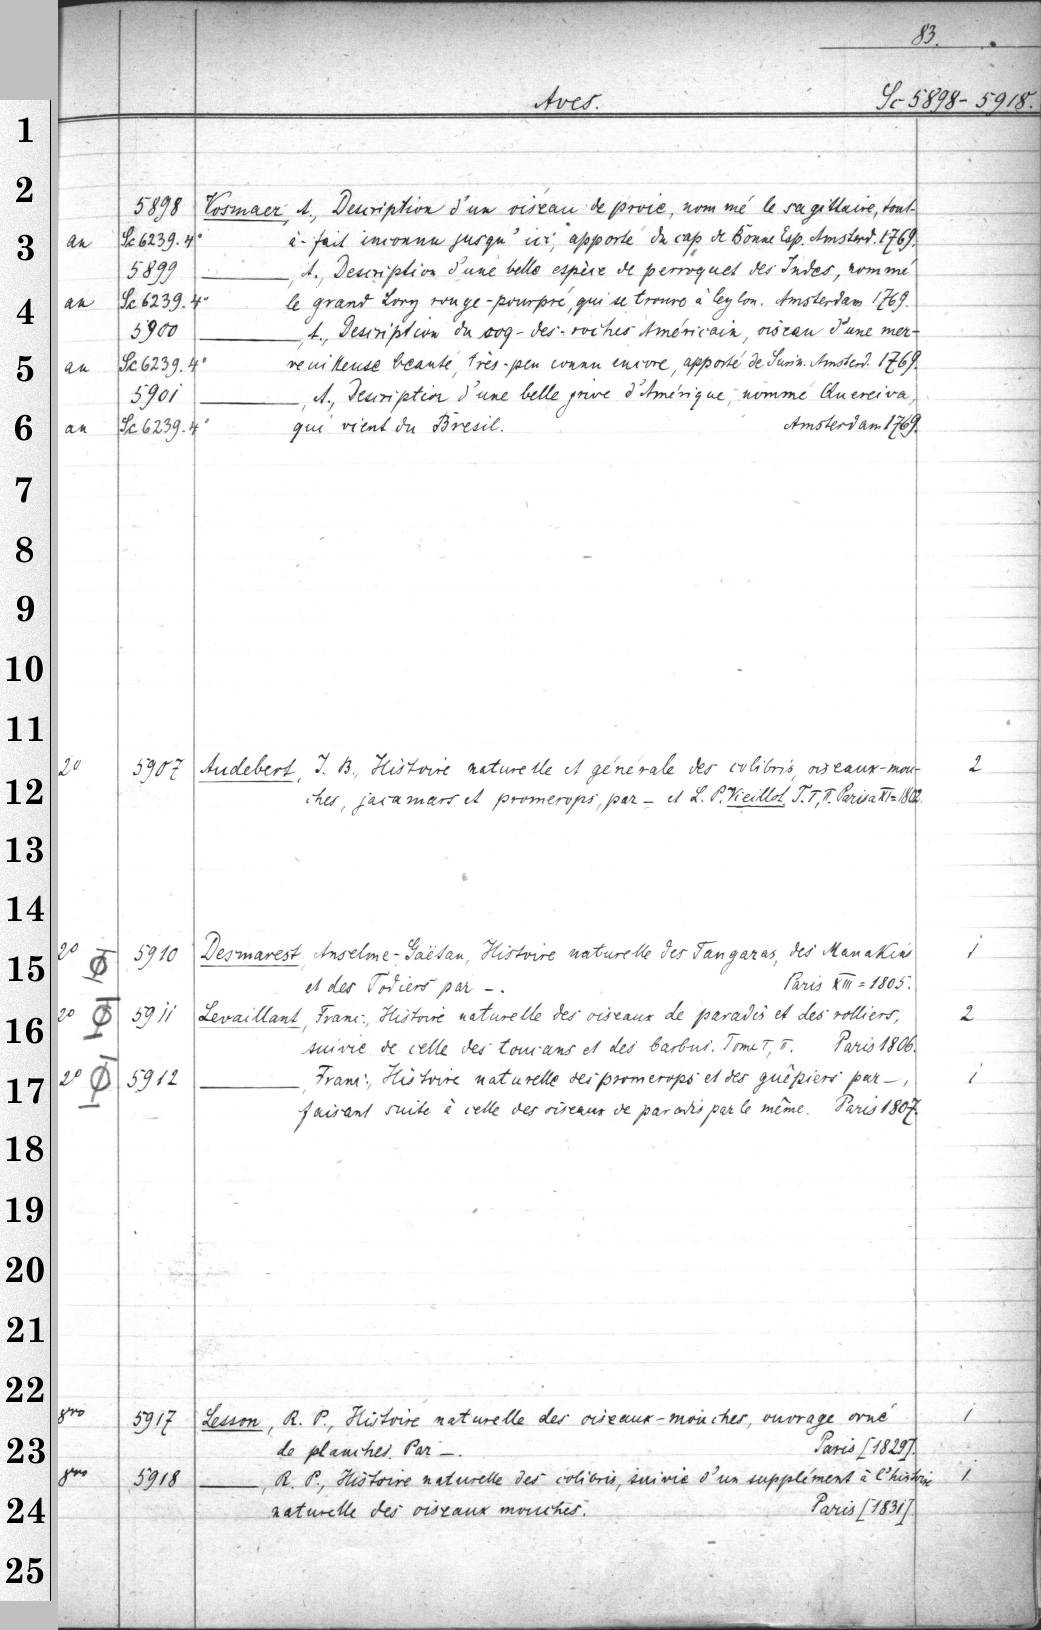 83.
Aves. Sc 5898-5918.
5898 Vosmaer, A., Description d'un oiseau de proie, nommé le sagittaire, tout-
an Sc 6239.4° à-fait inconnu jusqu'ici, apporté du cap de Bonne Esp. Amsterd. 1769.
5899 ———, A., Description d'une belle espèce de perroquet des Indes, nommé
an Sc 6239.4° le grand Lory rouge-pourpré, qui se trouve à Ceylon. Amsterdam 1769.
5900 ———, A., Description du coq-des-roches Américain, oiseau d'une mer-
an Sc 6239.4° veuilleuse beauté, très-peu connu encore, apporté de Surin. Amsterd. 1769.
5901 ———, A., Description d'une belle grive d'Amérique, nommé Quereiva,
an Sc 6239.4° qui vient du Brésil. Amsterdam 1769.
2° 5907 Audebert, J. B., Histoire naturelle et générale des colibris, oiseaux-mou- 2
ches, jacamars et promerops, par — et L. P. Vieillot. T. I, II. Paris a XI = 1802.
2° 5910 Desmarest, Anselme-Gaëtan, Histoire naturelle des Tangaras, des Manakins 1
et des Todiers par —. Paris XIII = 1805.
2° 5911 Levaillant, Franç., Histoire naturelle des oiseaux de paradis et des rolliers, 2
suivie de celle des toucans et des barbus. Tome I, II. Paris 1806.
2° 5912 ———, Franç., Histoire naturelle des promerops et des guêpiers par —, 1
faisant suite à celle des oiseaux de paradis par le même. Paris 1807.
8vo 5917 Lesson, R. P., Histoire naturelle des oiseaux-mouches, ouvrage orné 1
de planches. Par —. Paris [1829].
8vo 5918 ———, R. P., Histoire naturelle des colibris, suivie d'un supplément à l'histoire 1
naturelle des oiseaux mouches. Paris [1831].
1
2
3
4
5
6
7
8
9
10
11
12
13
14
15
16
17
18
19
20
21
22
23
24
25